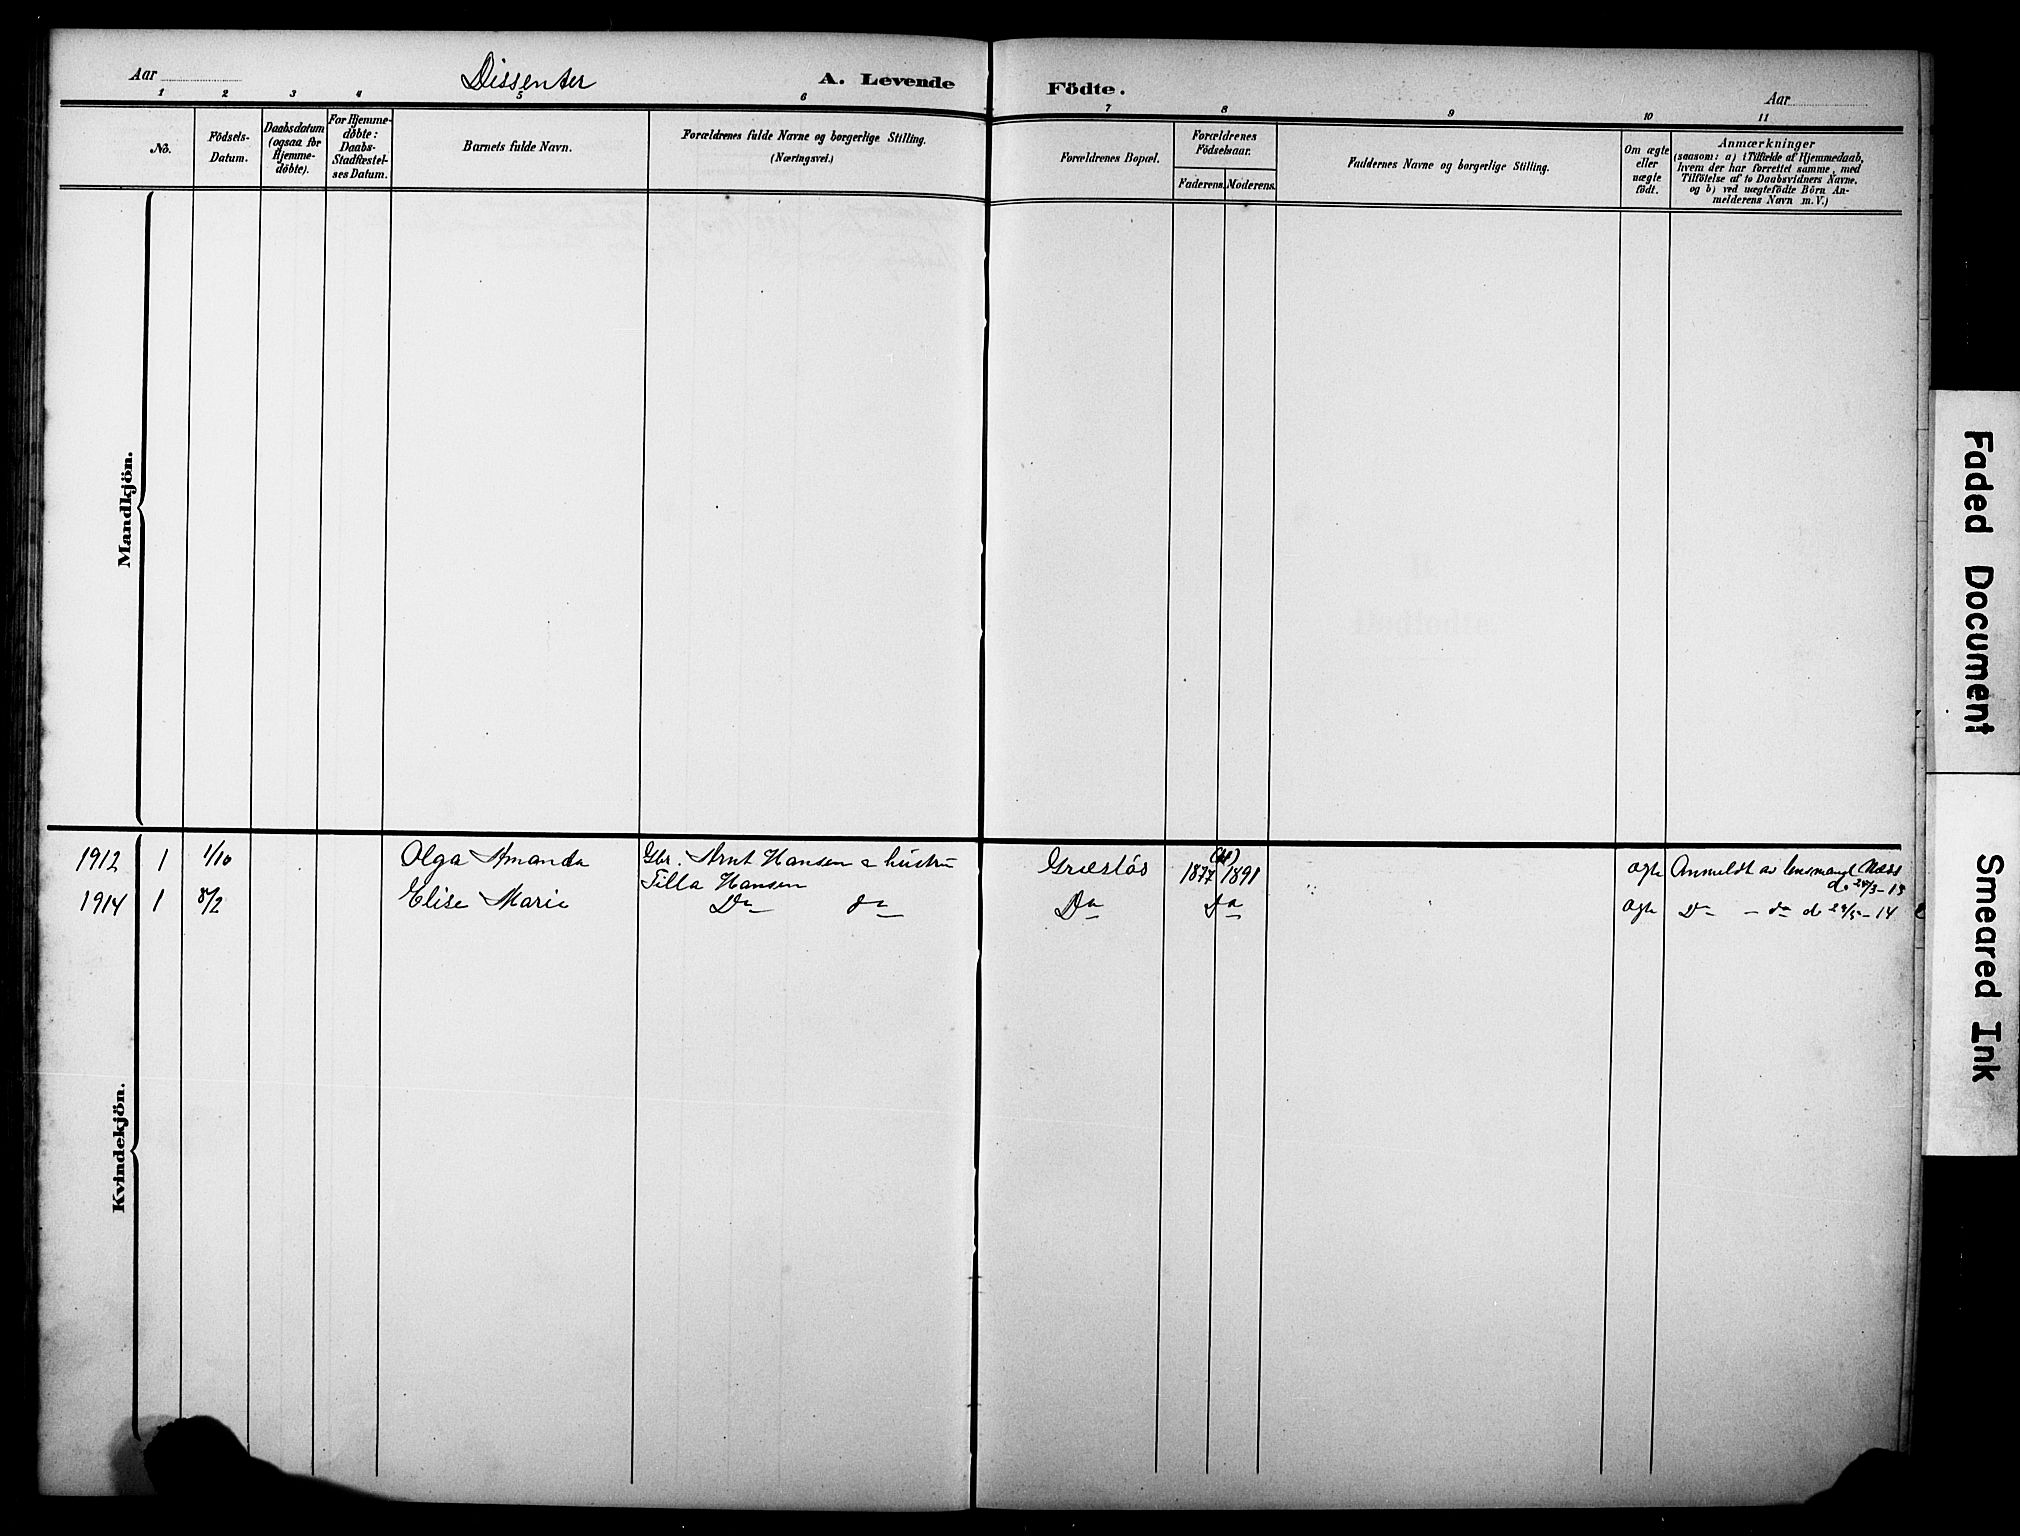 Aar
Dissenter
A. Levende
Födte.
Aar
1 2 3 4 5 6 7 8 9 10 11
No.
Födsels-
Datum.
Daabsdatum
(ogsaa for
Hjemme-
døbte).
For Hjemme-
døbte:
Daabs-
Stadfæstel-
ses Datum.
Barnets fulde Navn.
Forældrenes fulde Navne og borgerlige Stilling.
(Næringsvei.)
Forældrenes Bopæl.
Forældrenes
Födselsaar.
Faderens. Moderens.
Faddernes Navne og borgerlige Stilling.
Om ægte
eller
uægte
födt.
Anmærkninger
(saasom: a) i Tilfælde af Hjemmedaab,
hvem der har forrettet samme, med
Tilföielse af to Daabsvidners Navne,
og b) ved uægtefödte Börn An-
melderens Navn m.V.)
Mandkjön.
Kvindekjön.
1912 1 1/10 Olga Amanda Gbr. Arnt Hansen & hustru Græsløs 1877 1891 Ægte Anmeldt av lensmand Næss
Tilla Hansen
1914 1 8/2 Elise Marie Do do Do Do Ægte Do - do d. 24/5-14
Faded Document
Smeared Ink